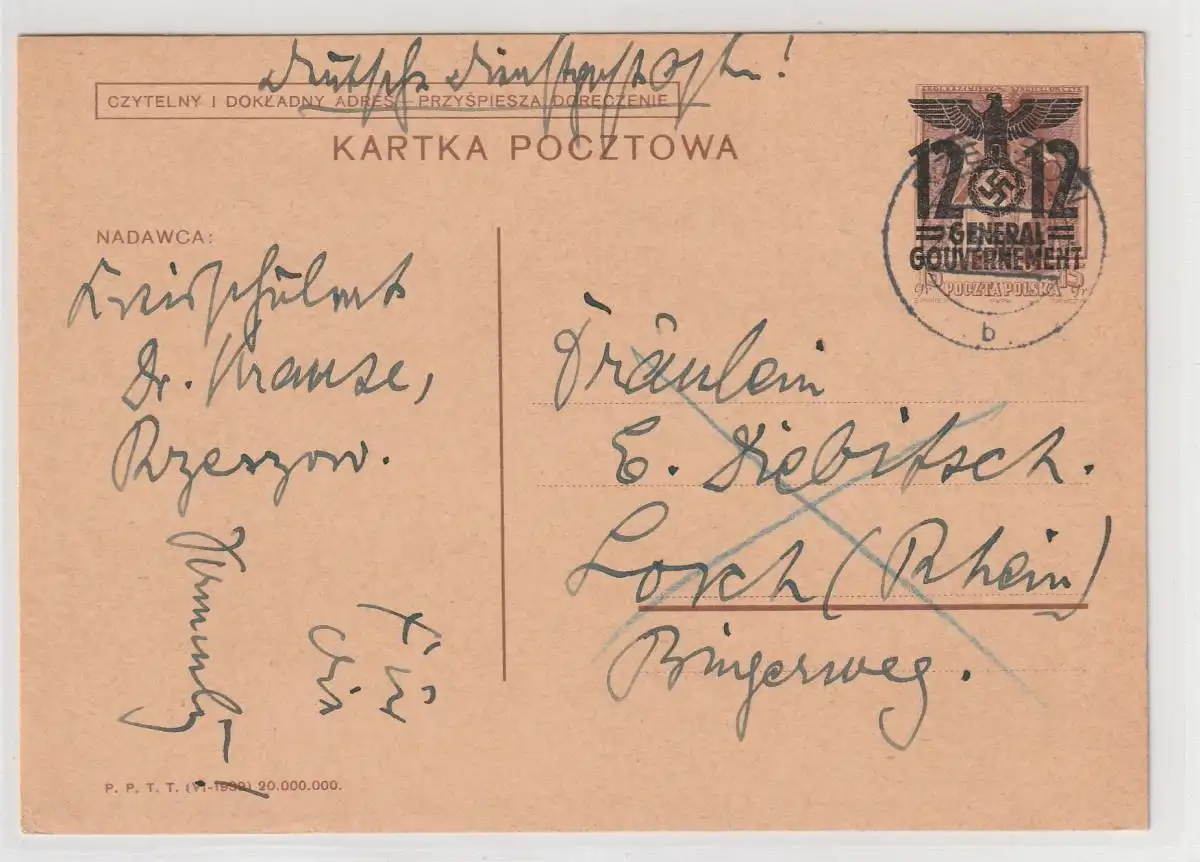 Deutsche Dienstpost Osten!
CZYTELNY I DOKŁADNY ADRES — PRZYŚPIESZA DORĘCZENIE
KARTKA POCZTOWA
12 12
GENERAL
GOUVERNEMENT
15 15
gr POCZTA POLSKA gr
b
NADAWCA:
Kreisschulamt
Dr. Krause,
Rzeszow.
Fräulein
E. Diebitsch.
Lorch (Rhein)
Bingerweg.
P. P. T. T. (VI-1939) 20.000.000.